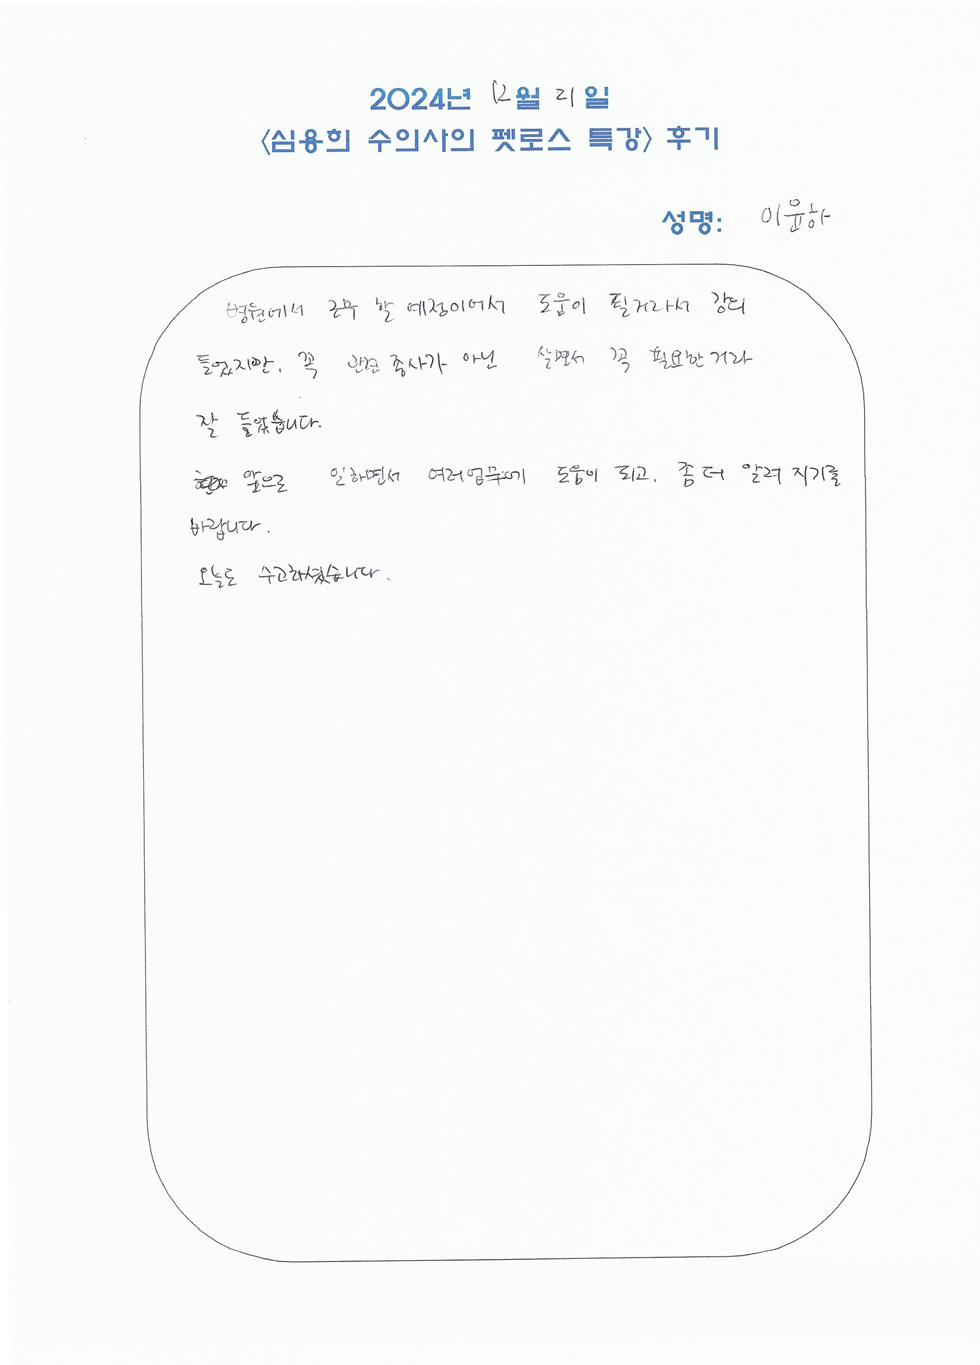 2024년 12월 21일
<심용희 수의사의 펫로스 특강> 후기
성명: 이윤하
병원에서 근무 할 예정이어서 도움이 될거라서 강의
들었지만, 꼭 관련 종사가 아닌 살면서 꼭 필요한거라
잘 들었습니다.
앞으로 일하면서 여러업무에 도움이 되고, 좀 더 알려 지기를
바랍니다.
오늘도 수고하셨습니다.